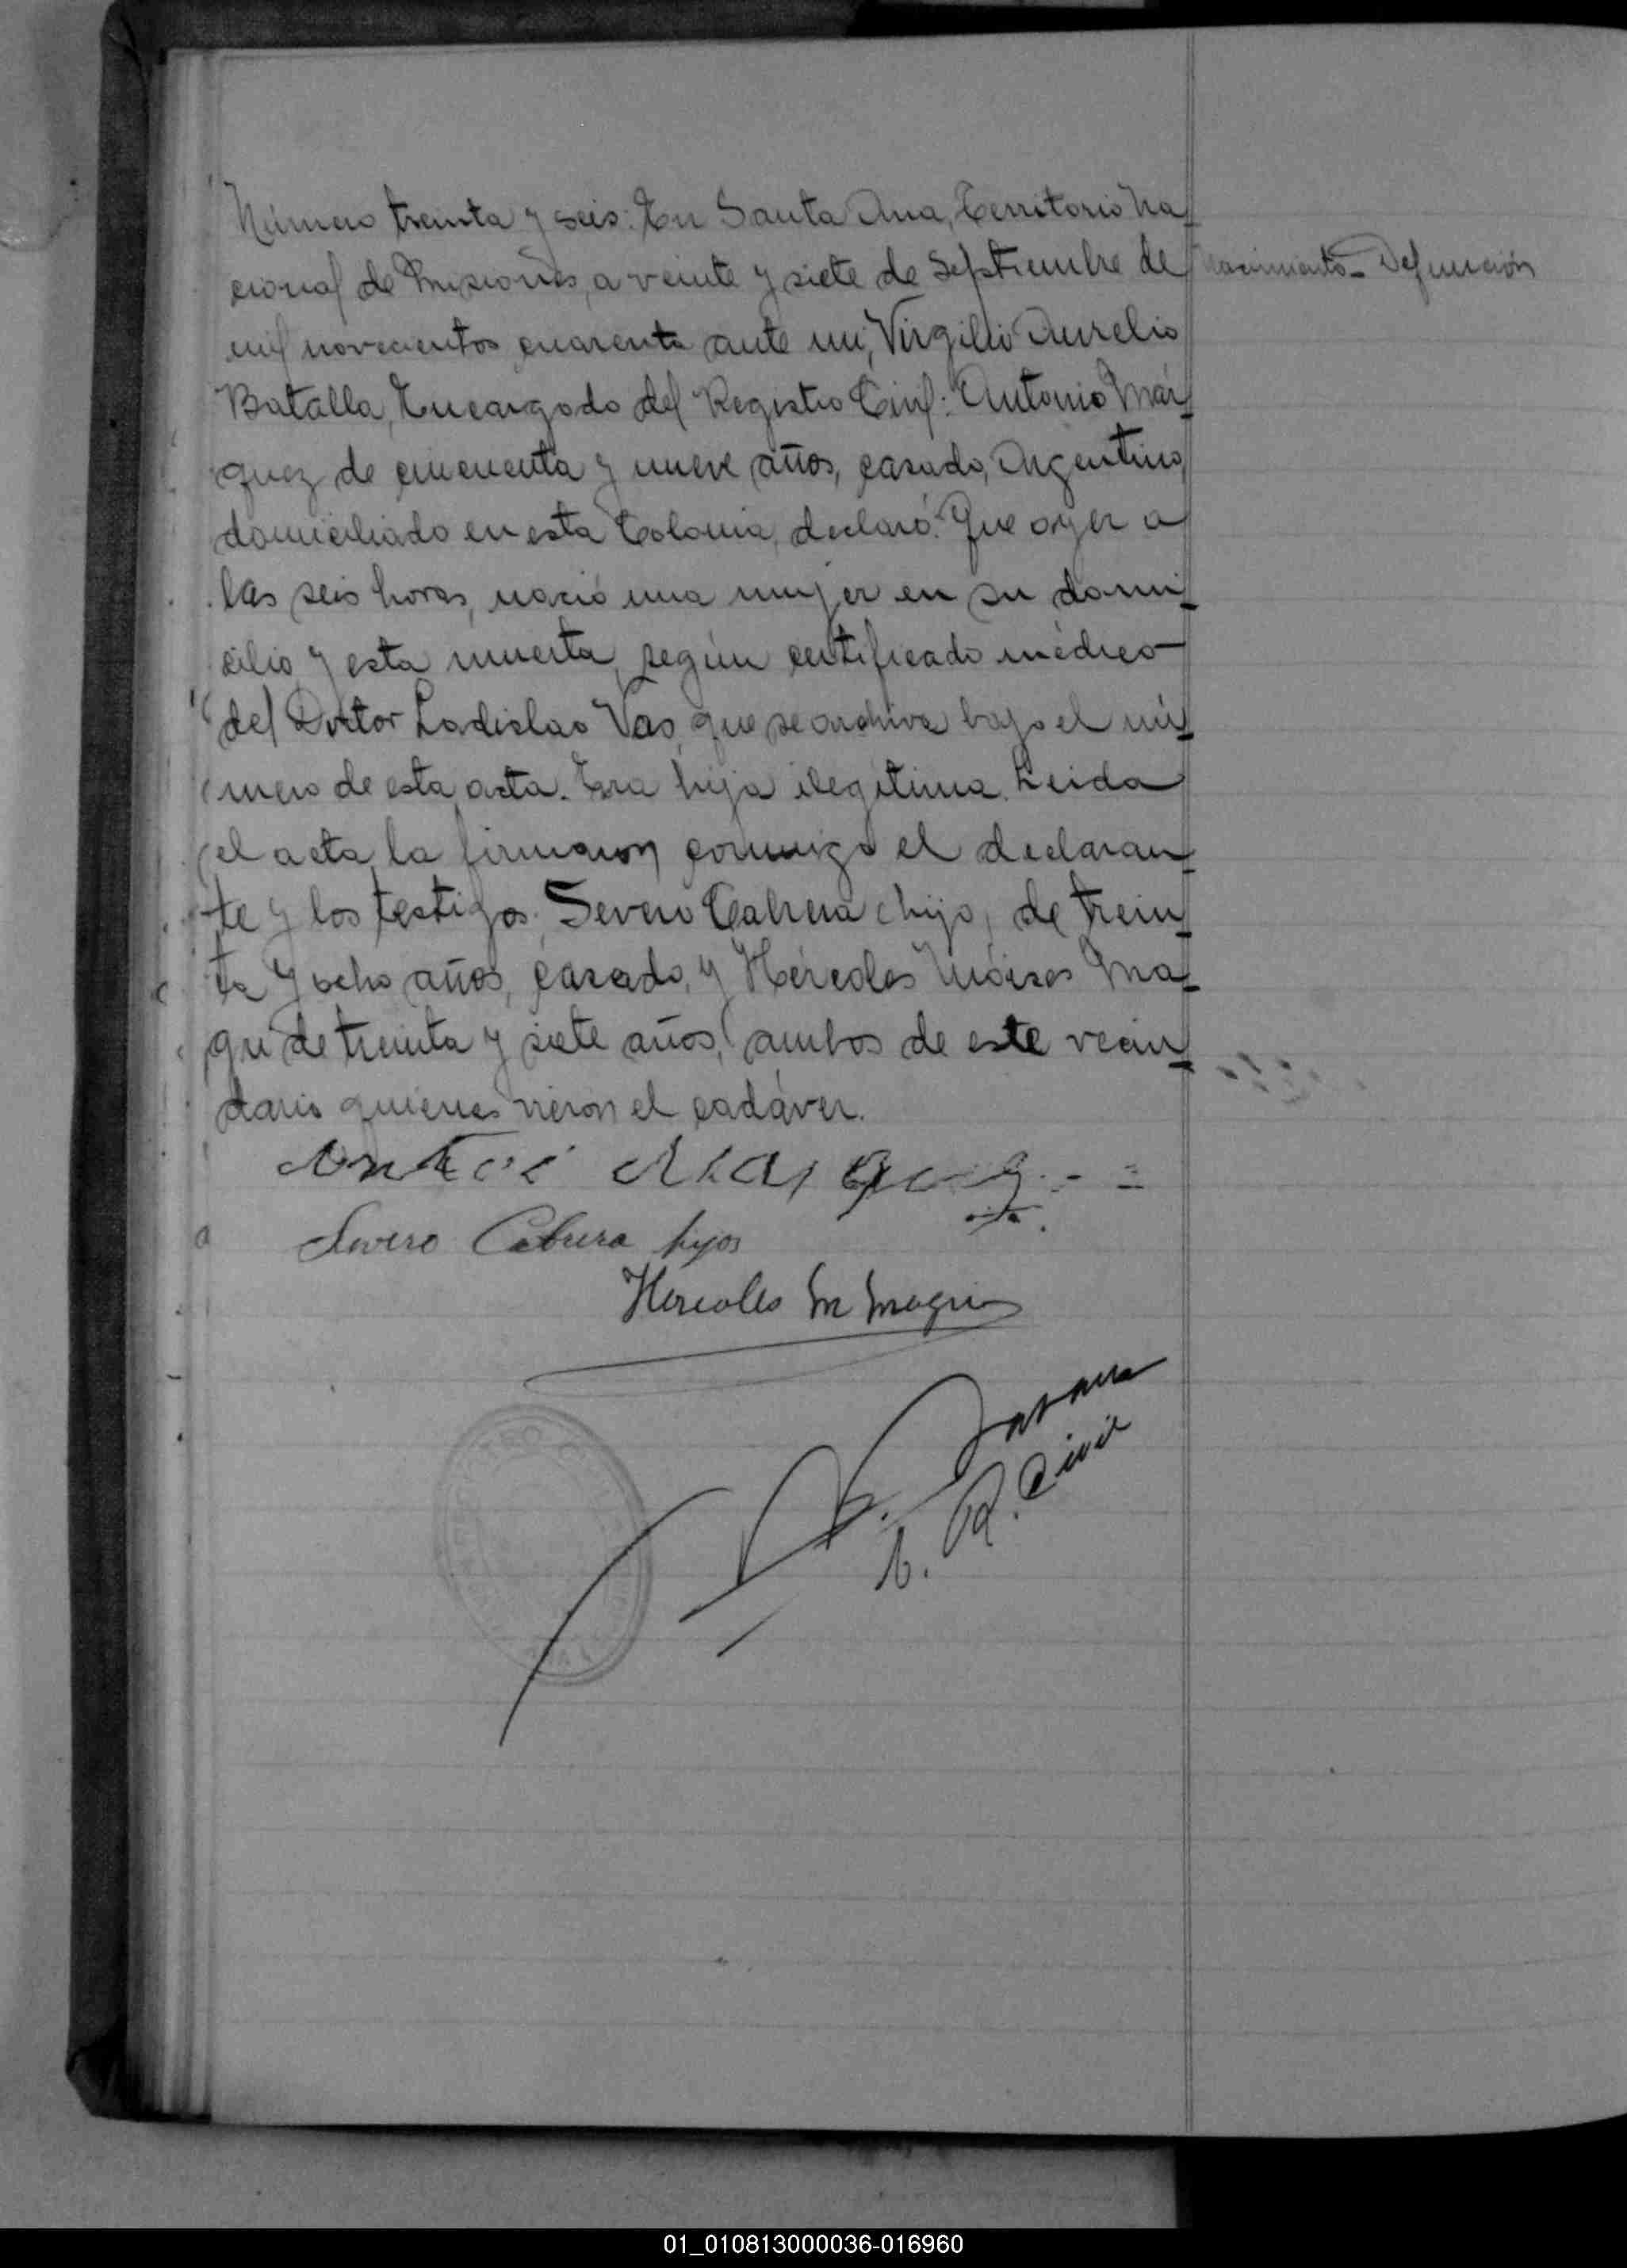 Número treinta y seis: En Santa Ana, Territorio Na-
cional de Misiones, a veinte y siete de Septiembre de
Nacimiento - Defunción
mil novecientos cuarenta ante mi, Virgilio Aurelio
Batalla, Encargado del Registro Civil: Antonio Már-
quez de cincuenta y nueve años, casado, Argentino,
domiciliado en esta Colonia, declaró: Que ayer a
las seis horas, nació una mujer en su domi-
cilio y esta muerta, según certificado médico
del Doctor Ladislao Vas, que se archiva bajo el nú-
mero de esta acta. Era hija ilegítima. Leida
el acta, la firmaron conmigo el declaran-
te y los testigos, Severo Cabrera (hijo) de trein-
ta y ocho años, casado, y Hércoles Móises Ma-
gri de treinta y siete años, ambos de este vecin-
dario quienes vieron el cadáver.
Marquez
Severo Cabrera hijo
Hercoles M Magri
E. R. Civil
01_010813000036-016960